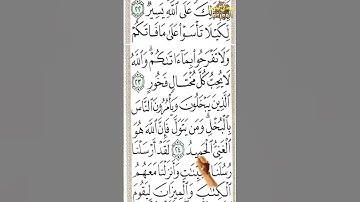 ذَٰلِكَ عَلَى ٱللَّهِ يَسِيرٌ ٢٢
لِّكَيْلَا تَأْسَوْا۟ عَلَىٰ مَا فَاتَكُمْ
وَلَا تَفْرَحُوا۟ بِمَآ ءَاتَىٰكُمْ ۗ وَٱللَّهُ
لَا يُحِبُّ كُلَّ مُخْتَالٍ فَخُورٍ ٢٣
ٱلَّذِينَ يَبْخَلُونَ وَيَأْمُرُونَ ٱلنَّاسَ
بِٱلْبُخْلِ ۗ وَمَن يَتَوَلَّ فَإِنَّ ٱللَّهَ هُوَ
ٱلْغَنِىُّ ٱلْحَمِيدُ ٢٤ لَقَدْ أَرْسَلْنَا
رُسُلَنَا بِٱلْبَيِّنَٰتِ وَأَنزَلْنَا مَعَهُمُ
ٱلْكِتَٰبَ وَٱلْمِيزَانَ لِيَقُومَ